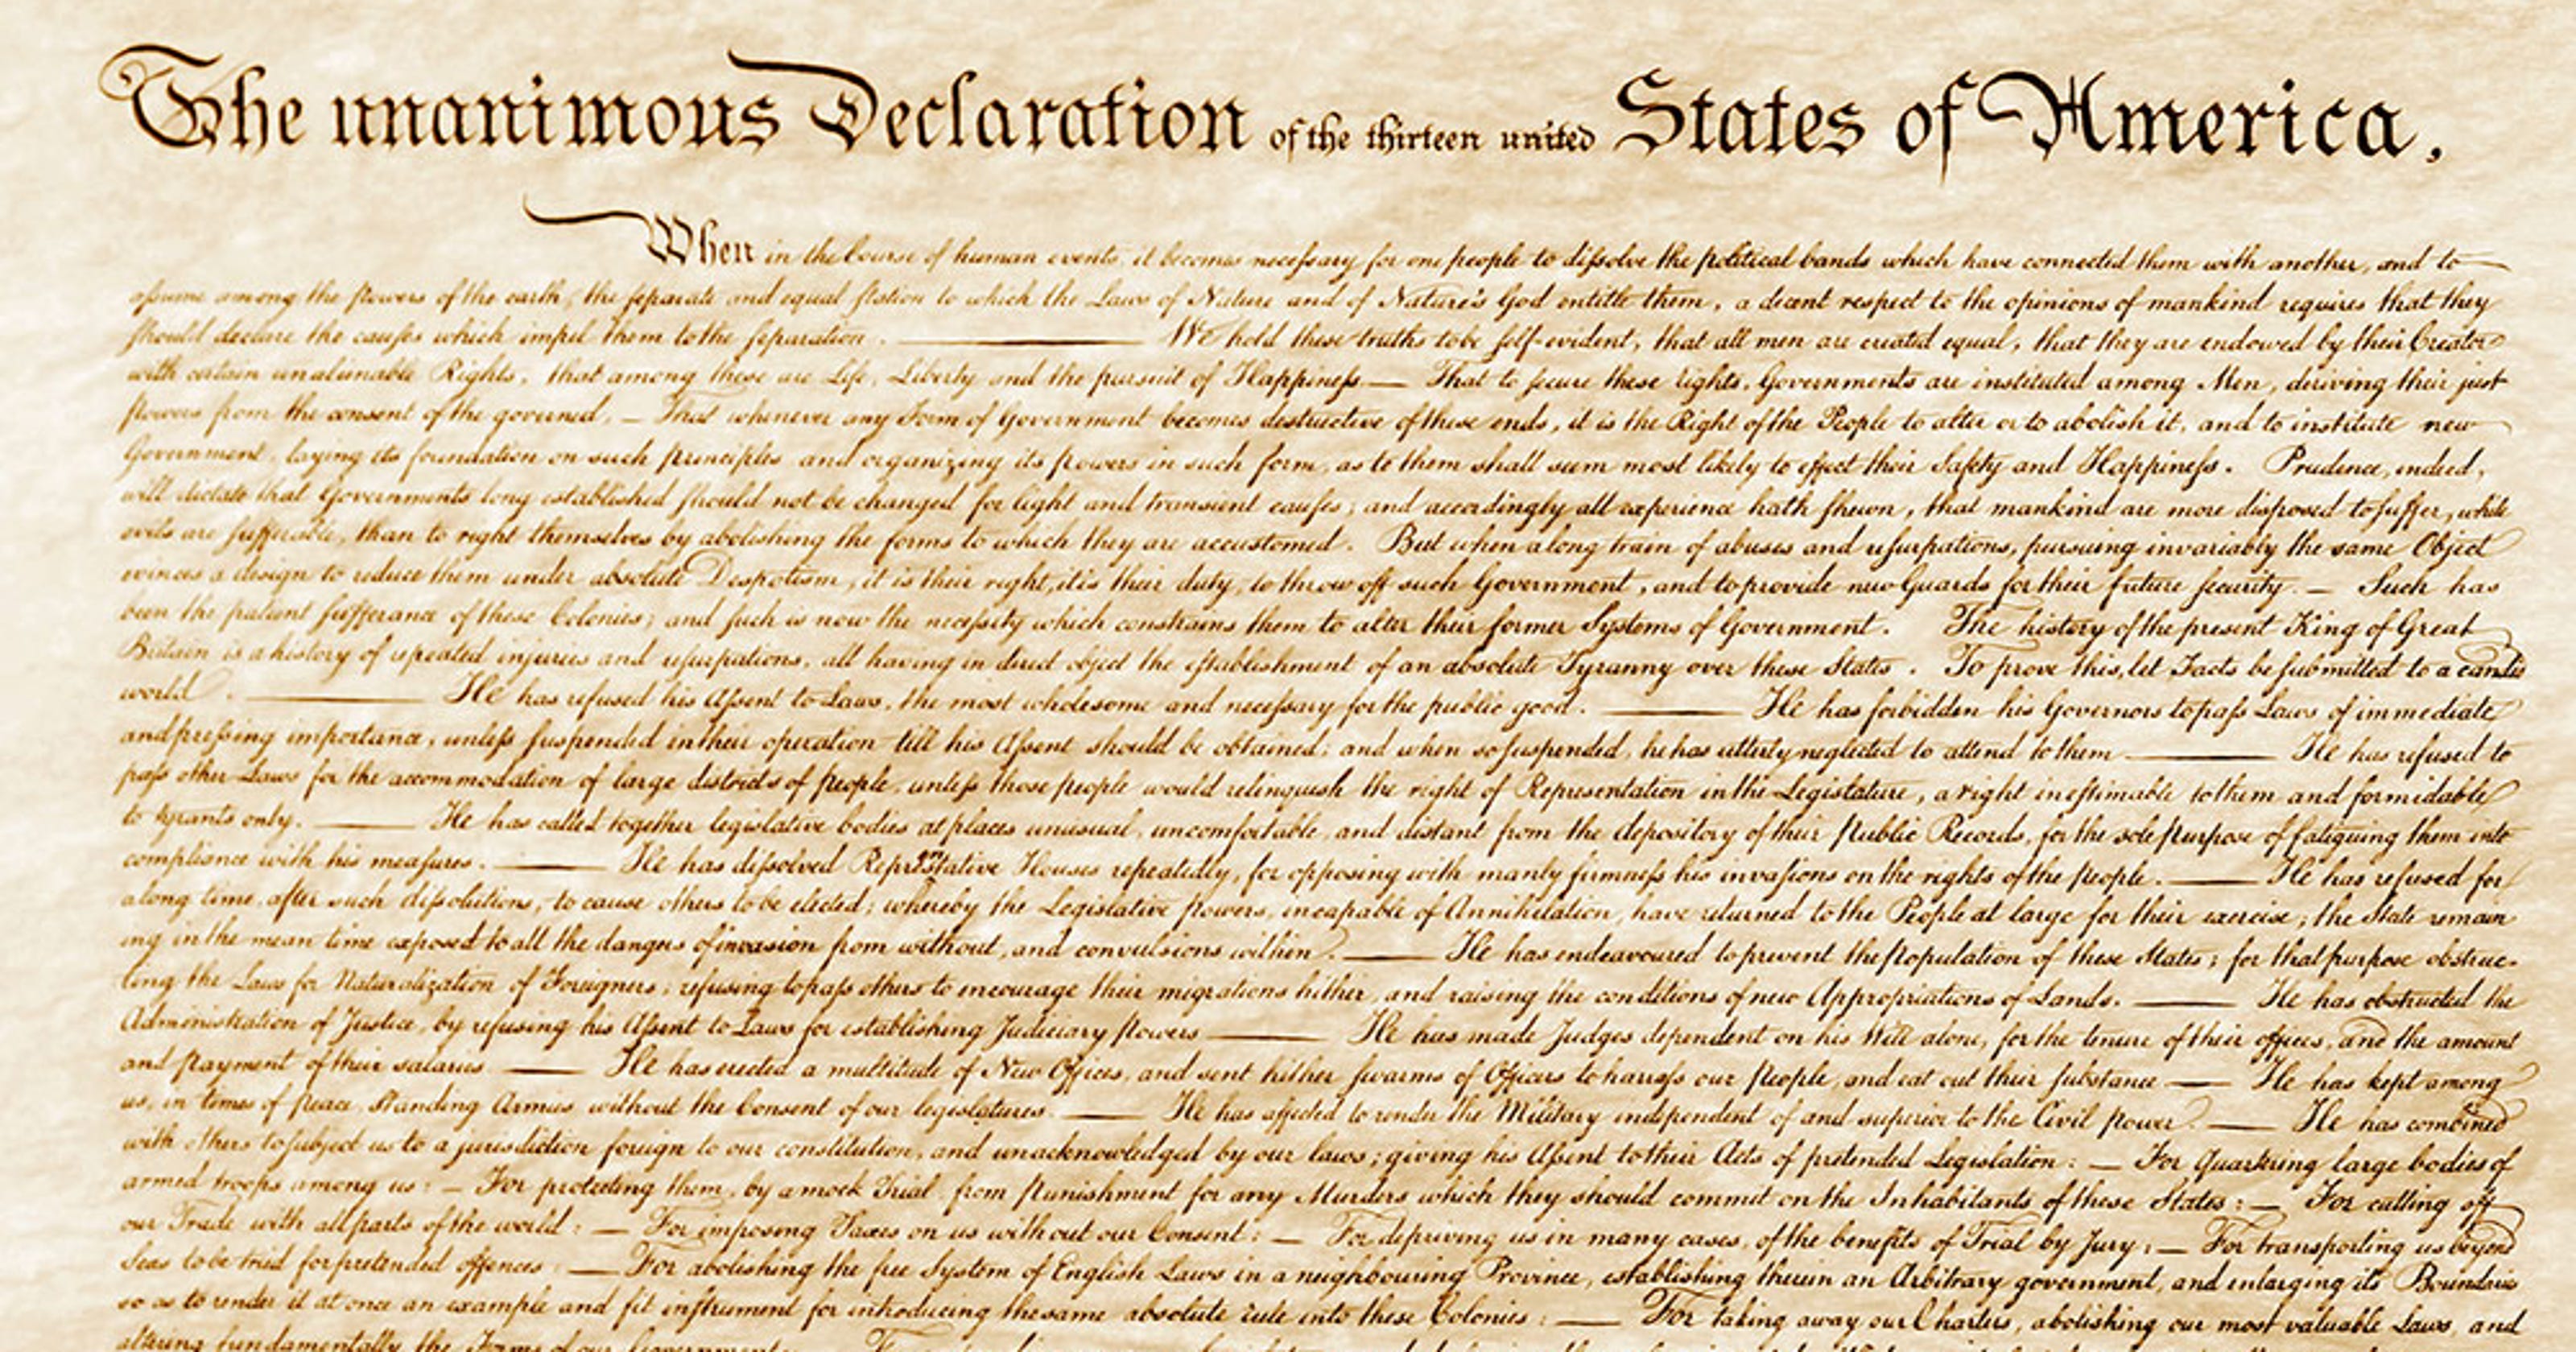 The unanimous Declaration of the thirteen united States of America,
When in the Course of human events, it becomes necessary for one people to dissolve the political bands which have connected them with another, and to
assume among the powers of the earth, the separate and equal station to which the Laws of Nature and of Nature's God entitle them, a decent respect to the opinions of mankind requires that they
should declare the causes which impel them to the separation. ——— We hold these truths to be self-evident, that all men are created equal, that they are endowed by their Creator
with certain unalienable Rights, that among these are Life, Liberty and the pursuit of Happiness.— That to secure these rights, Governments are instituted among Men, deriving their just
powers from the consent of the governed, — That whenever any Form of Government becomes destructive of these ends, it is the Right of the People to alter or to abolish it, and to institute new
Government, laying its foundation on such principles and organizing its powers in such form, as to them shall seem most likely to effect their Safety and Happiness. Prudence, indeed,
will dictate that Governments long established should not be changed for light and transient causes; and accordingly all experience hath shewn, that mankind are more disposed to suffer, while
evils are sufferable, than to right themselves by abolishing the forms to which they are accustomed. But when a long train of abuses and usurpations, pursuing invariably the same Object
evinces a design to reduce them under absolute Despotism, it is their right, it is their duty, to throw off such Government, and to provide new Guards for their future security. — Such has
been the patient sufferance of these Colonies; and such is now the necessity which constrains them to alter their former Systems of Government. The history of the present King of Great
Britain is a history of repeated injuries and usurpations, all having in direct object the establishment of an absolute Tyranny over these States. To prove this, let Facts be submitted to a candid
world. ——— He has refused his Assent to Laws, the most wholesome and necessary for the public good. ——— He has forbidden his Governors to pass Laws of immediate
and pressing importance, unless suspended in their operation till his Assent should be obtained; and when so suspended, he has utterly neglected to attend to them ——— He has refused to
pass other Laws for the accommodation of large districts of people, unless those people would relinquish the right of Representation in the Legislature, a right inestimable to them and formidable
to tyrants only. ——— He has called together legislative bodies at places unusual, uncomfortable, and distant from the depository of their Public Records, for the sole purpose of fatiguing them into
compliance with his measures. ——— He has dissolved Representative Houses repeatedly, for opposing with manly firmness his invasions on the rights of the people. ——— He has refused for
a long time, after such dissolutions, to cause others to be elected; whereby the Legislative powers, incapable of Annihilation, have returned to the People at large for their exercise; the State remain
ing in the mean time exposed to all the dangers of invasion from without, and convulsions within. ——— He has endeavoured to prevent the population of these States; for that purpose obstruc-
ting the Laws for Naturalization of Foreigners; refusing to pass others to encourage their migrations hither, and raising the conditions of new Appropriations of Lands. ——— He has obstructed the
Administration of Justice, by refusing his Assent to Laws for establishing Judiciary powers ——— He has made Judges dependent on his Will alone, for the tenure of their offices, and the amount
and payment of their salaries ——— He has erected a multitude of New Offices, and sent hither swarms of Officers to harrass our people, and eat out their substance — He has kept among
us, in times of peace, Standing Armies without the Consent of our legislatures. ——— He has affected to render the Military independent of and superior to the Civil power. — He has combined
with others to subject us to a jurisdiction foreign to our constitution, and unacknowledged by our laws; giving his Assent to their Acts of pretended Legislation: — For Quartering large bodies of
armed troops among us: — For protecting them, by a mock Trial, from punishment for any Murders which they should commit on the Inhabitants of these States: — For cutting off
our Trade with all parts of the world: — For imposing Taxes on us without our Consent: — For depriving us in many cases, of the benefits of Trial by Jury: — For transporting us beyond
Seas to be tried for pretended offences — For abolishing the free System of English Laws in a neighbouring Province, establishing therein an Arbitrary government, and enlarging its Boundaries
so as to render it at once an example and fit instrument for introducing the same absolute rule into these Colonies: — For taking away our Charters, abolishing our most valuable Laws, and
altering fundamentally the Forms of our Governments: